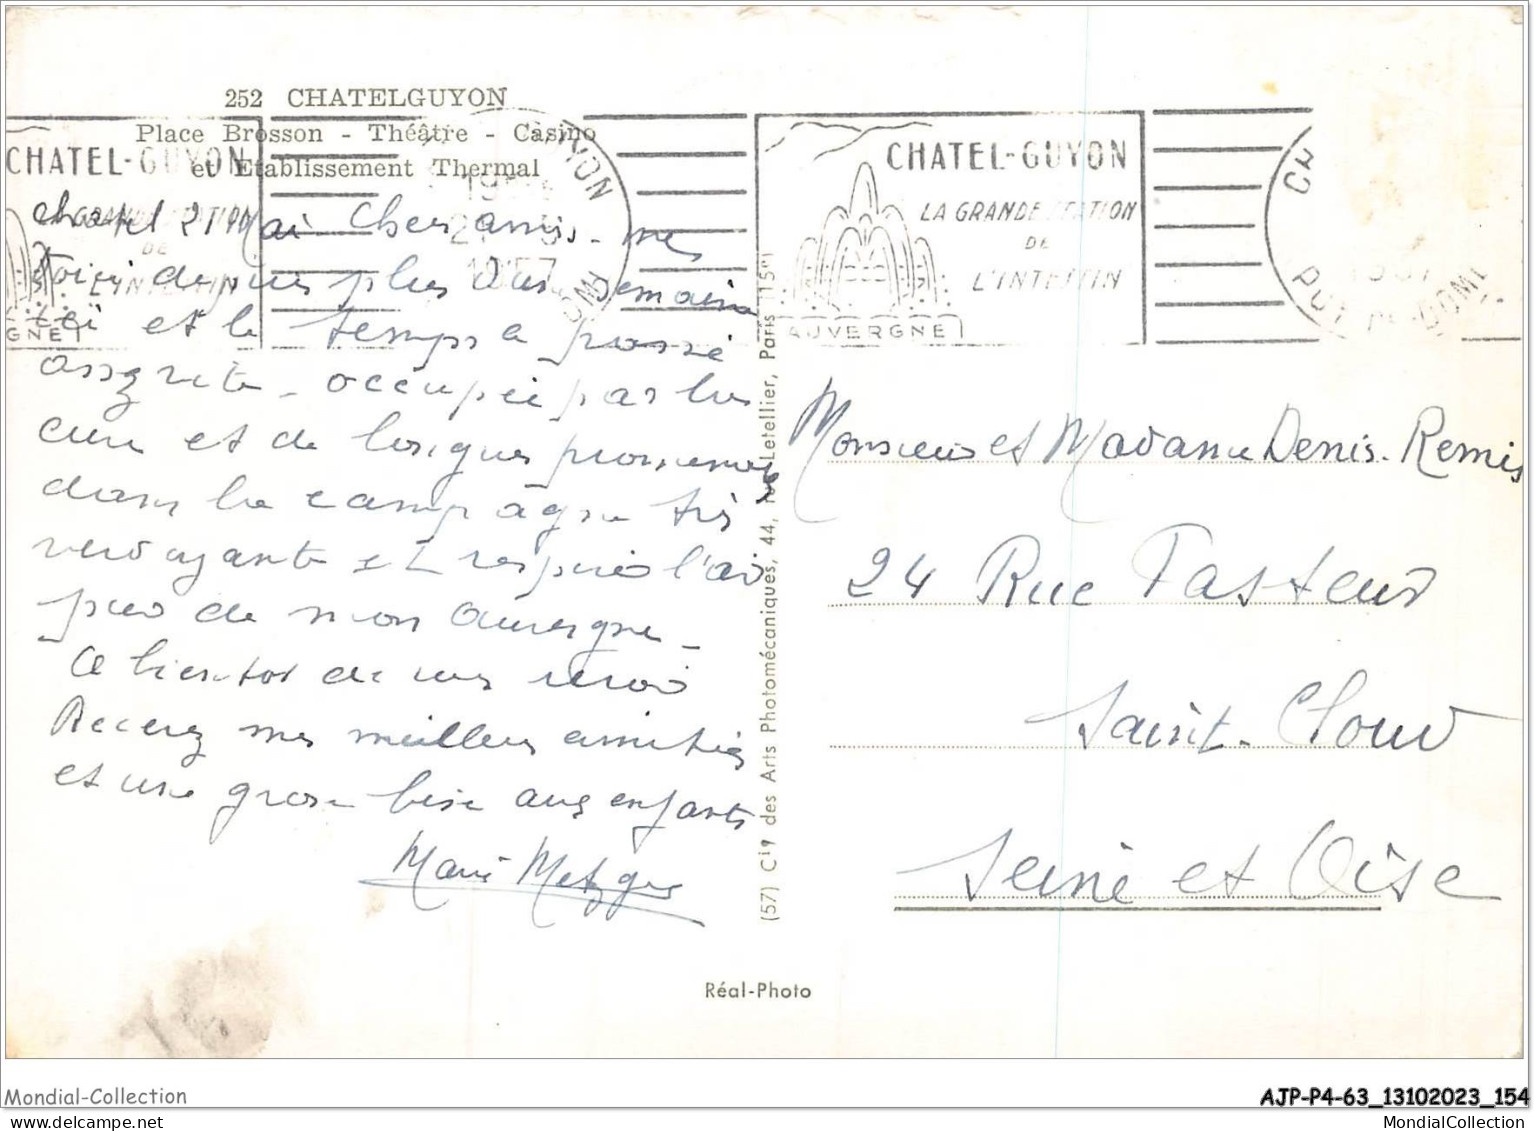 252 CHATELGUYON
Place Brosson - Théâtre - Casino
et Etablissement Thermal
CHATEL-GUYON
LA GRANDE STATION
DE
L'INTESTIN
AUVERGNE
CHATEL-GUYON
GRANDE STATION
DE
L'INTESTIN
GNE
GUYON
1957
DOME
PUY DE DOME
chatel 21 Mai Chers amis - me
voici depuis plus d'une semaine
ici et le temps a passé
assez vite - occupée par les
cure et de longues promenades
dans la campagne très
verdoyante et respirer l'air
pur de mon auvergne -
a bientot de vous revoir
Recevez mes meilleures amitiés
et une grosse bise aux enfants
Marie Metzger
(57) Cie des Arts Photomécaniques, 44, rue Letellier, Paris (15e)
Monsieur et Madame Denis-Remis
24 Rue Pasteur
Saint-Cloud
Seine et Oise
Réal-Photo
Mondial-Collection
AJP-P4-63_13102023_154
MondialCollection